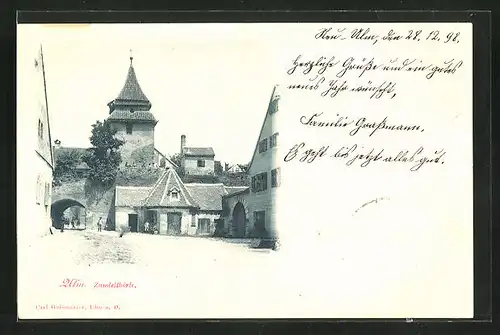 Neu-Ulm, den 28. 12. 98.
Herzliche Grüße und ein gutes
neues Jahr wünscht,
Familie Graßmann.
Es geht bis jetzt alles gut.
Ulm. Zundelthörle.
Ulm a. D.